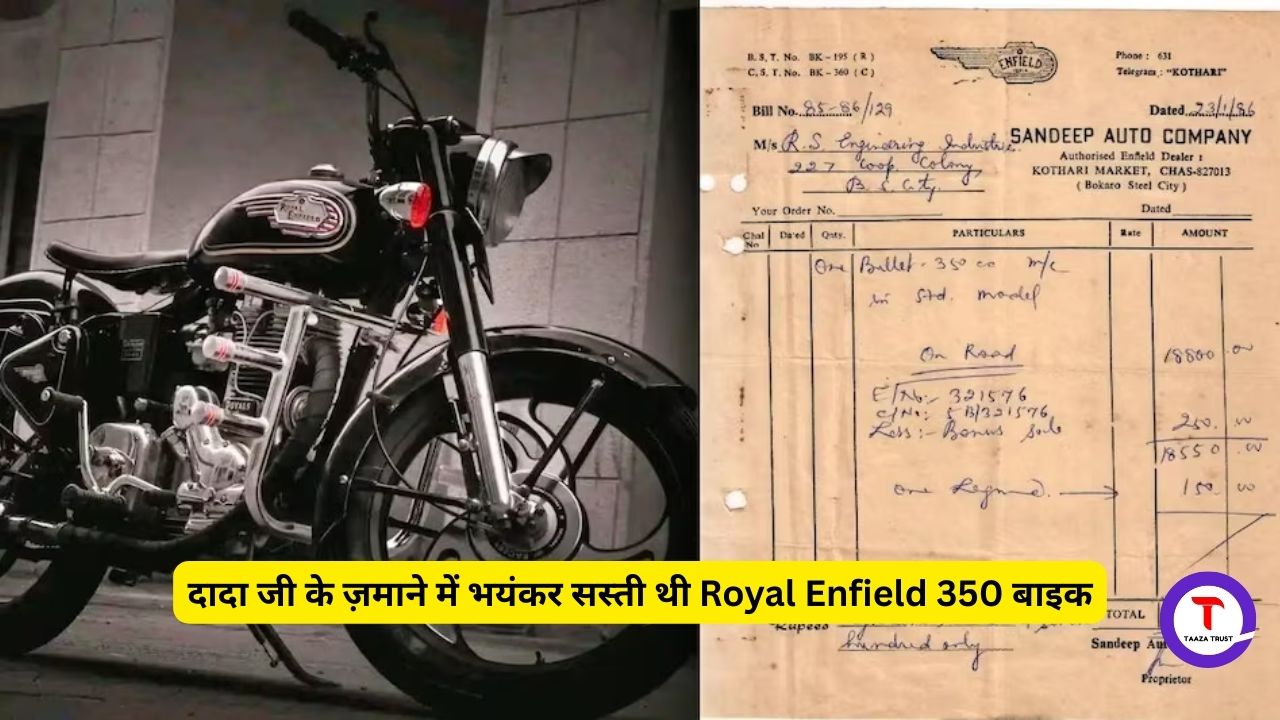 ROYAL
ENFIELD
B.S.T. No. BK-195 (R)
C.S.T. No. BK-360 (C)
ENFIELD
Phone: 631
Telegram: "KOTHARI"
Bill No. 85-86/129
Dated 23/1/86
M/s R.S. Engineering Industries.
227 Coop. Colony,
B.S. City.
SANDEEP AUTO COMPANY
Authorised Enfield Dealer:
KOTHARI MARKET, CHAS-827013
(Bokaro Steel City)
Your Order No.
Dated
Chal No Dated Qnty. PARTICULARS Rate AMOUNT
One Bullet-350 cc m/c
in Std. model
On Road 18800.00
E/No:- 321576
C/No:- 5B/321576
Less:- Bonus Sale 250.00
18550.00
One 150.00
दादा जी के ज़माने में भयंकर सस्ती थी Royal Enfield 350 बाइक
TOTAL
Rupees
hundred only
Sandeep
Proprietor
T
TAAZA TRUST